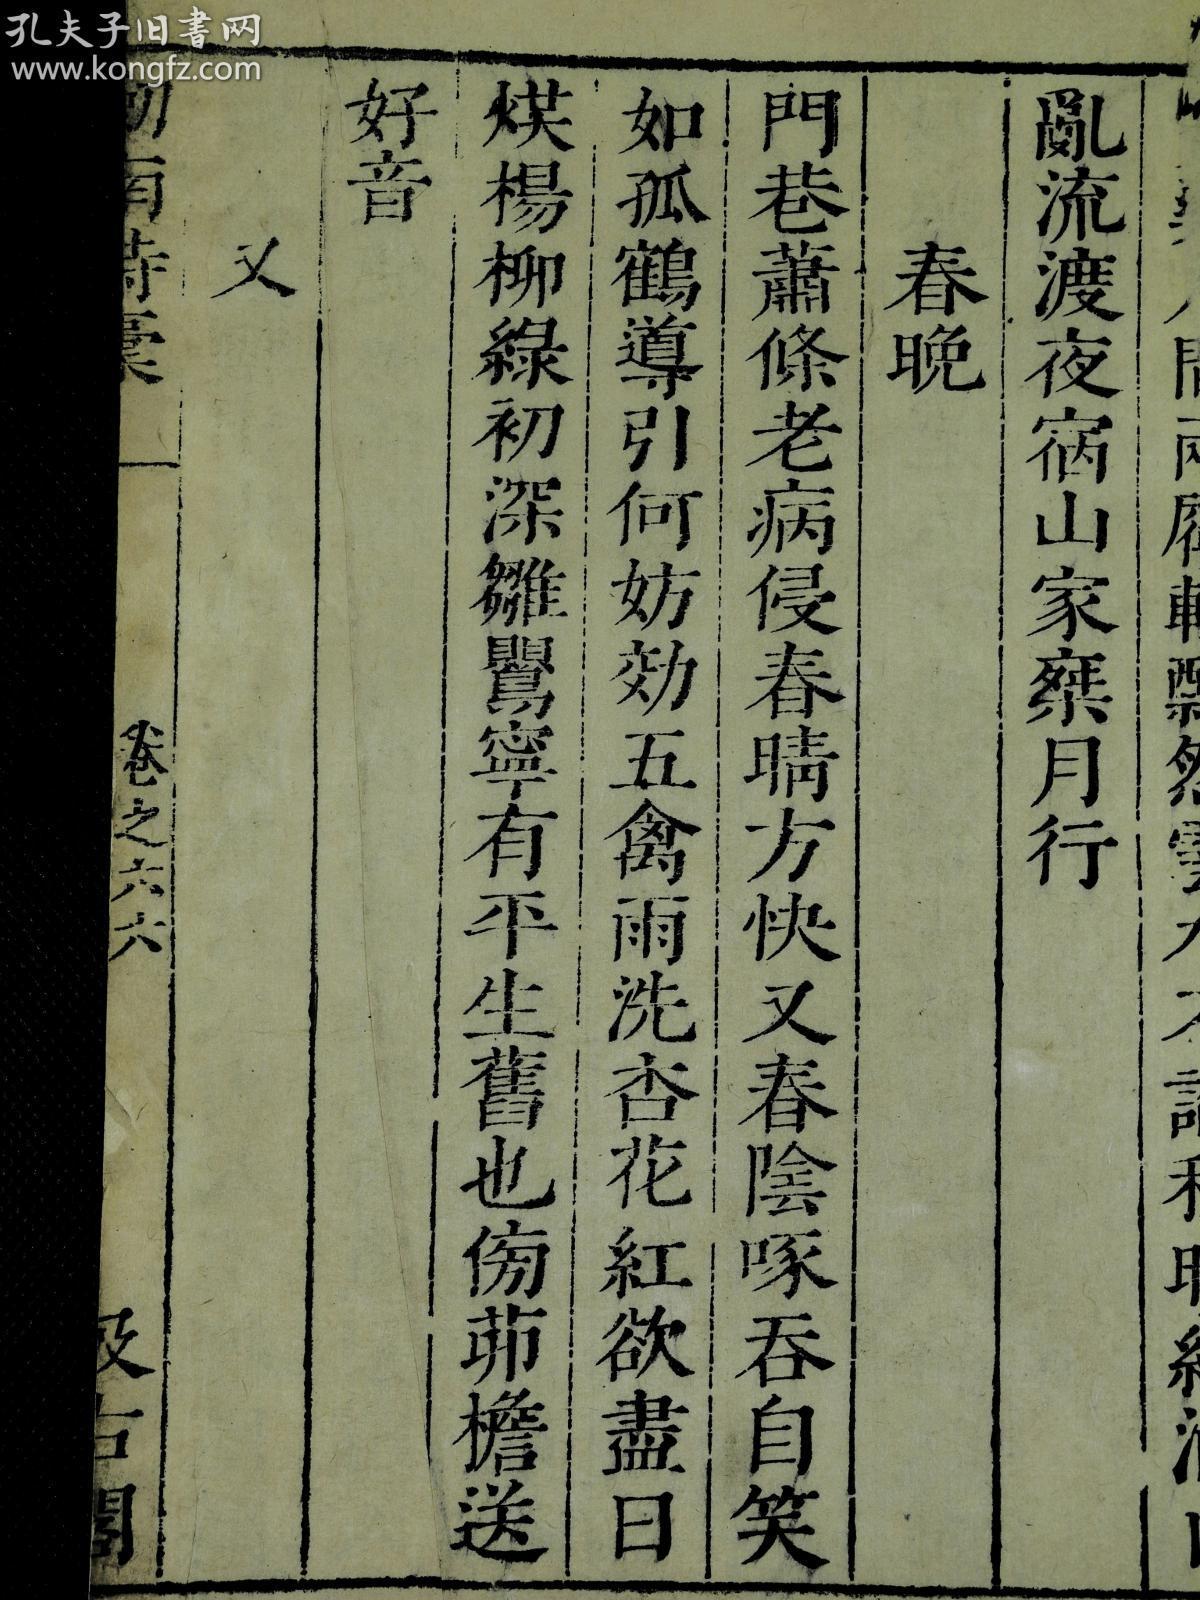 孔夫子旧书网
www.kongfz.com
亂流渡夜宿山家乗月行
春晚
門巷蕭條老病侵春晴方快又春陰啄吞自笑
如孤鶴導引何妨効五禽雨洗杏花紅欲盡日
烘楊柳綠初深雛鸎寧有平生舊也傍茆檐送
好音
又
劍南詩稾
卷之六
六
汲古閣